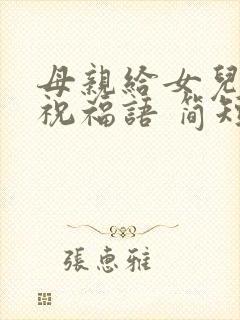 母親給女兒
祝福語 簡短
張惠雅